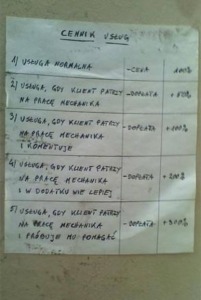 CENNIK USŁUG
1) USŁUGA NORMALNA -CENA 100%
2) USŁUGA, GDY KLIENT PATRZY -DOPŁATA +50%
NA PRACĘ MECHANIKA
3) USŁUGA, GDY KLIENT PATRZY
NA PRACĘ MECHANIKA -DOPŁATA +100%
I KOMENTUJE
4) USŁUGA, GDY KLIENT PATRZY
NA PRACĘ MECHANIKA -DOPŁATA +200%
I W DODATKU WIE LEPIEJ
5) USŁUGA, GDY KLIENT PATRZY
NA PRACĘ MECHANIKA -DOPŁATA +300%
I PRÓBUJE MU POMAGAĆ